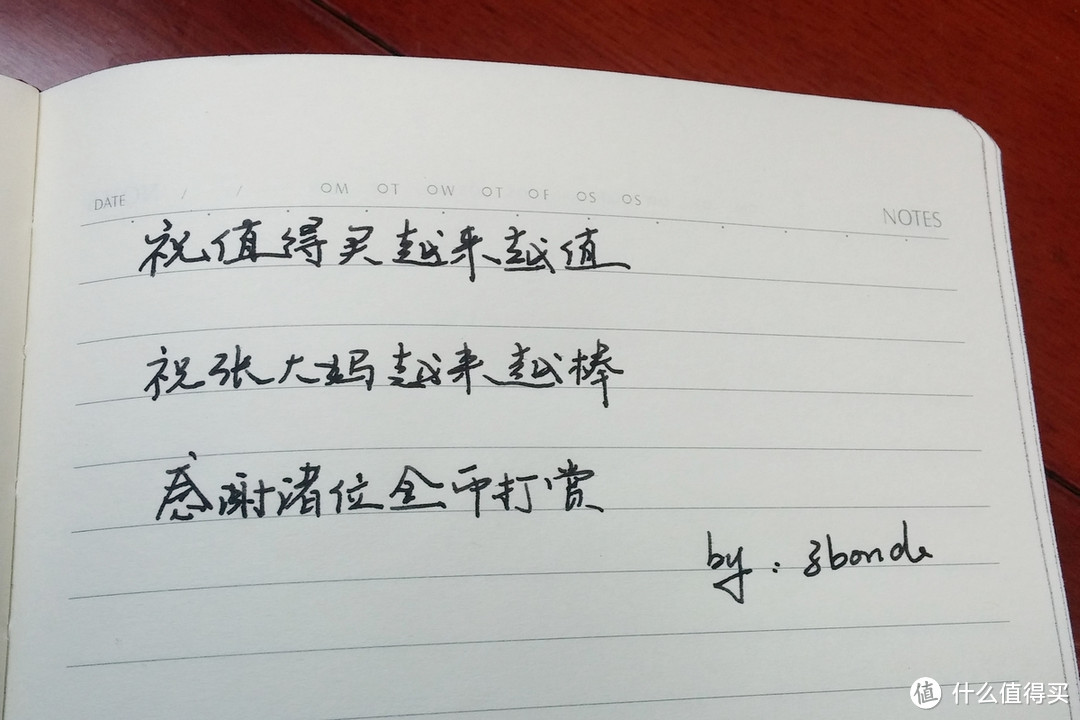 DATE / / OM OT OW OT OF OS OS NOTES
祝值得买越来越值
祝张大妈越来越棒
感谢诸位金币打赏
by:
值 什么值得买